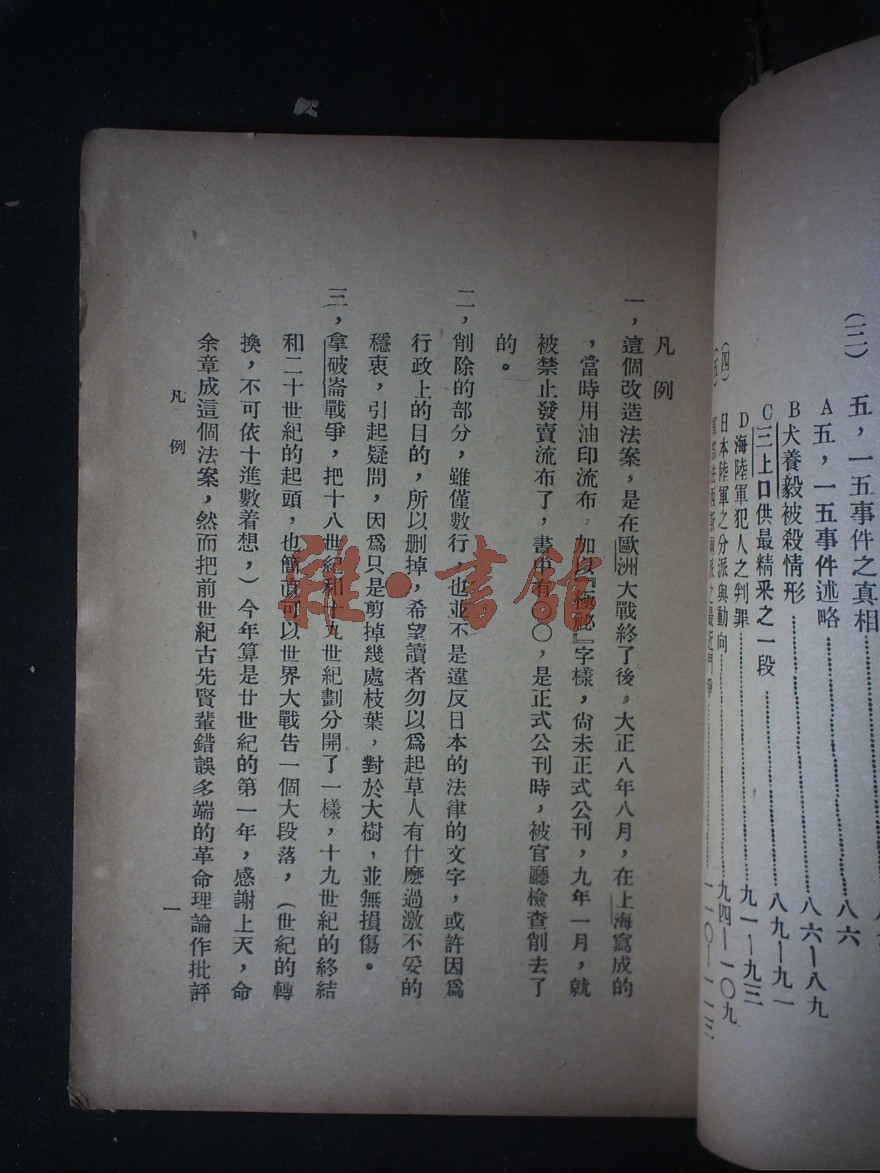 (三)　五，一五事件之真相
A五，一五事件述略……八六
B犬養毅被殺情形……八六—八九
C三上口供最精釆之一段……八九—九一
D海陸軍犯人之判罪……九一—九三
(四)　日本陸軍之分派與動向……九四—一〇九
凡例
一，這個改造法案，是在歐洲大戰終了後，大正八年八月，在上海寫成的
，當時用油印流布，加以『極祕』字樣，尙未正式公刊，九年一月，就
被禁止發賣流布了，書中有〇〇，是正式公刊時，被官廳檢查削去了
的。
二，削除的部分，雖僅數行，也並不是違反日本的法律的文字，或許因爲
行政上的目的，所以删掉，希望讀者勿以爲起草人有什麽過激不妥的
穩衷，引起疑問，因爲只是剪掉幾處枝葉，對於大樹，並無損傷。
三，拿破崙戰爭，把十八世紀和十九世紀劃分開了一樣，十九世紀的終結
和二十世紀的起頭，也簡直可以世界大戰告一個大段落，(世紀的轉
換，不可依十進數着想，)今年算是廿世紀的第一年，感謝上天，命
余章成這個法案，然而把前世紀古先賢輩錯誤多端的革命理論作批評
凡例
一
雜·書館